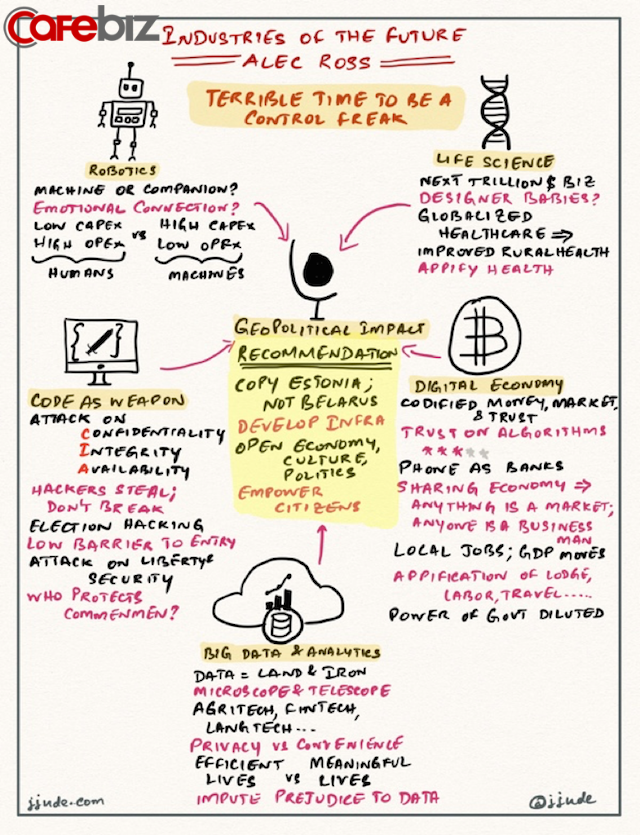 CAFEBIZ
INDUSTRIES OF THE FUTURE
ALEC ROSS
TERRIBLE TIME TO BE A
CONTROL FREAK
ROBOTICS
MACHINE OR COMPANION?
EMOTIONAL CONNECTION?
LOW CAPEX VS HIGH CAPEX
HIGH OPEX LOW OPEX
HUMANS MACHINES
LIFE SCIENCE
NEXT TRILLION $ BIZ
DESIGNER BABIES?
GLOBALIZED
HEALTHCARE ⇒
IMPROVED RURAL HEALTH
APPIFY HEALTH
GEOPOLITICAL IMPACT
RECOMMENDATION
COPY ESTONIA;
NOT BELARUS
DEVELOP INFRA
OPEN ECONOMY,
CULTURE,
POLITICS
EMPOWER
CITIZENS
CODE AS WEAPON
ATTACK ON
CONFIDENTIALITY
INTEGRITY
AVAILABILITY
HACKERS STEAL;
DON'T BREAK
ELECTION HACKING
LOW BARRIER TO ENTRY
ATTACK ON LIBERTY &
SECURITY
WHO PROTECTS
COMMENMEN?
DIGITAL ECONOMY
CODIFIED MONEY, MARKET,
& TRUST
TRUST ON ALGORITHMS
*****
PHONE AS BANKS
SHARING ECONOMY ⇒
ANYTHING IS A MARKET;
ANYONE IS A BUSINESS
MAN
LOCAL JOBS; GDP MOVES
APPIFICATION OF LODGE,
LABOR, TRAVEL.....
POWER OF GOVT DILUTED
BIG DATA & ANALYTICS
DATA = LAND & IRON
MICROSCOPE & TELESCOPE
AGRITECH, FINTECH,
LANGTECH...
PRIVACY VS CONVENIENCE
EFFICIENT MEANINGFUL
LIVES VS LIVES
IMPUTE PREJUDICE TO DATA
jjude.com
@jjude